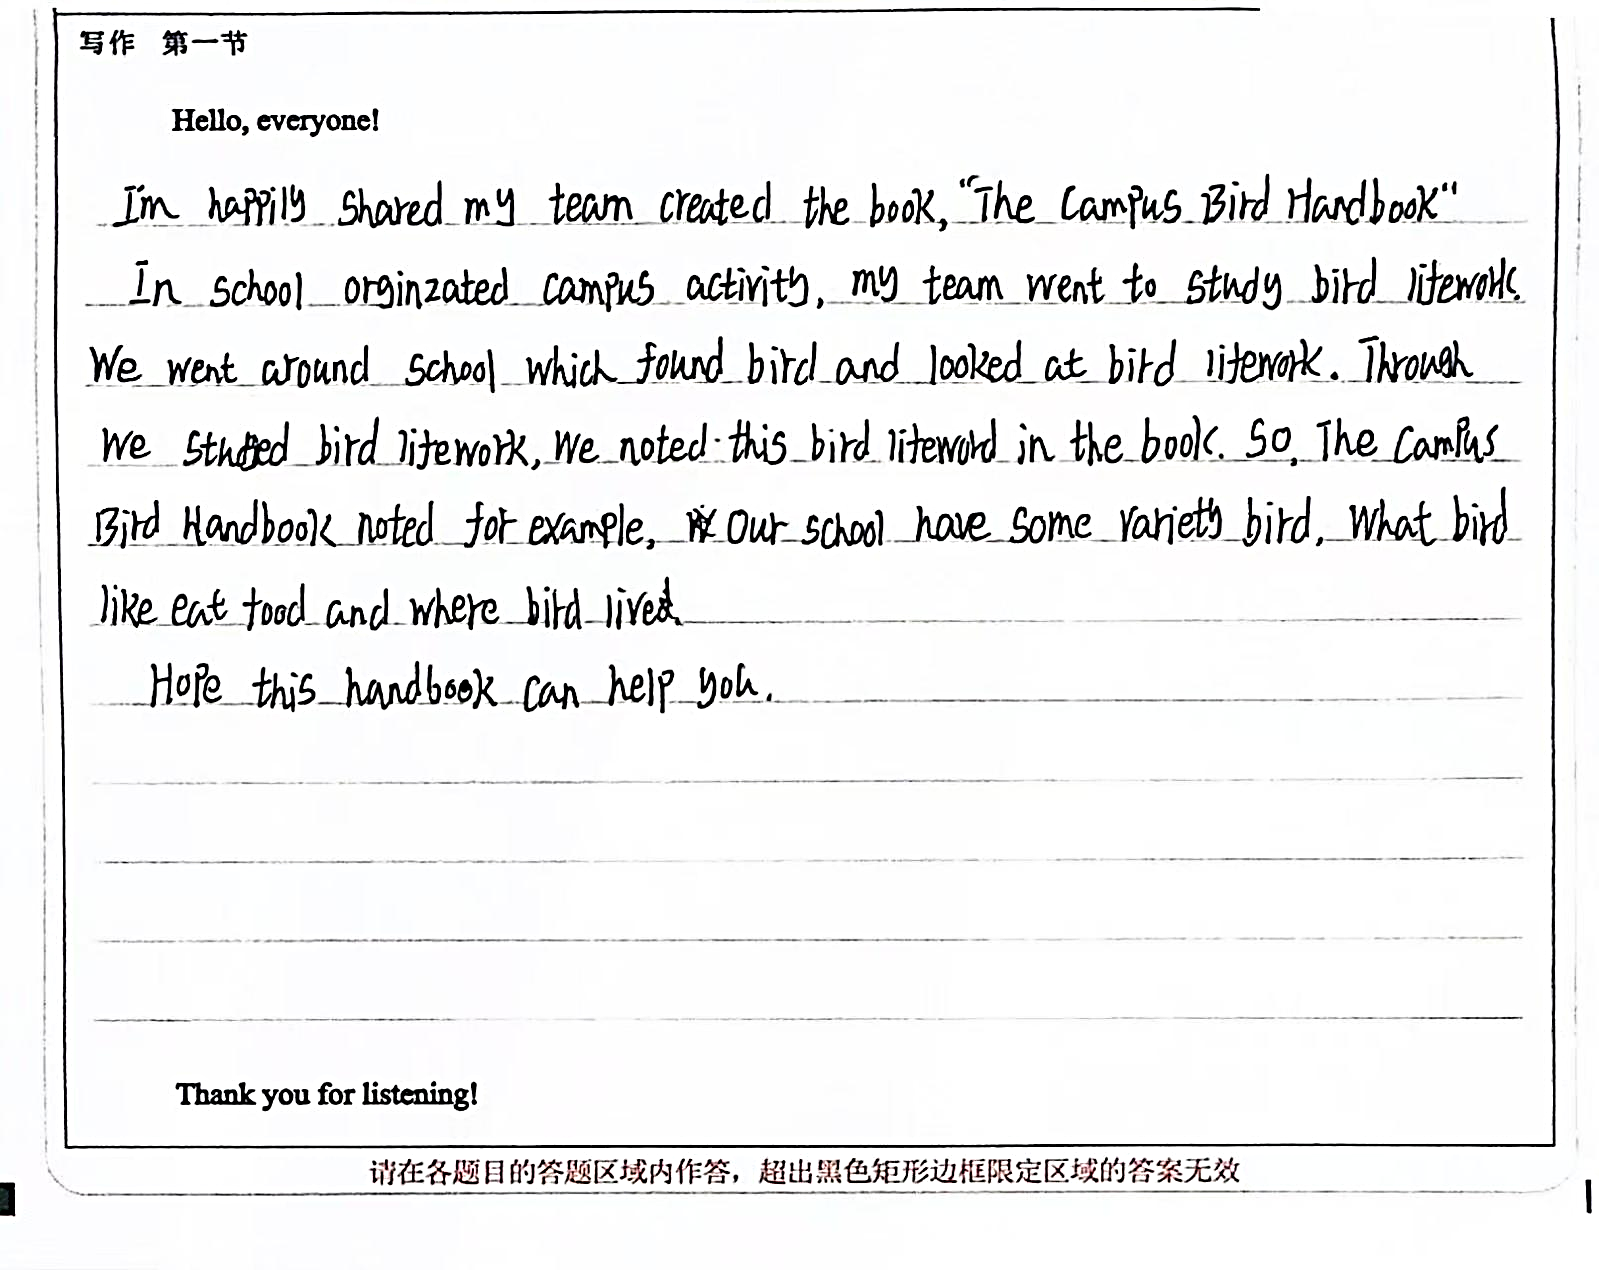 写作 第一节
Hello, everyone!
I'm happily shared my team created the book, "The Campus Bird Handbook"
In school orginzated campus activity, my team went to study bird litework.
We went around school which found bird and looked at bird litework. Through
we studied bird litework, We noted this bird liteword in the book. So, The Campus
Bird Handbook noted for example, Our school have some variety bird, What bird
like eat food and where bird lived.
Hope this handbook can help you.
Thank you for listening!
请在各题目的答题区域内作答，超出黑色矩形边框限定区域的答案无效